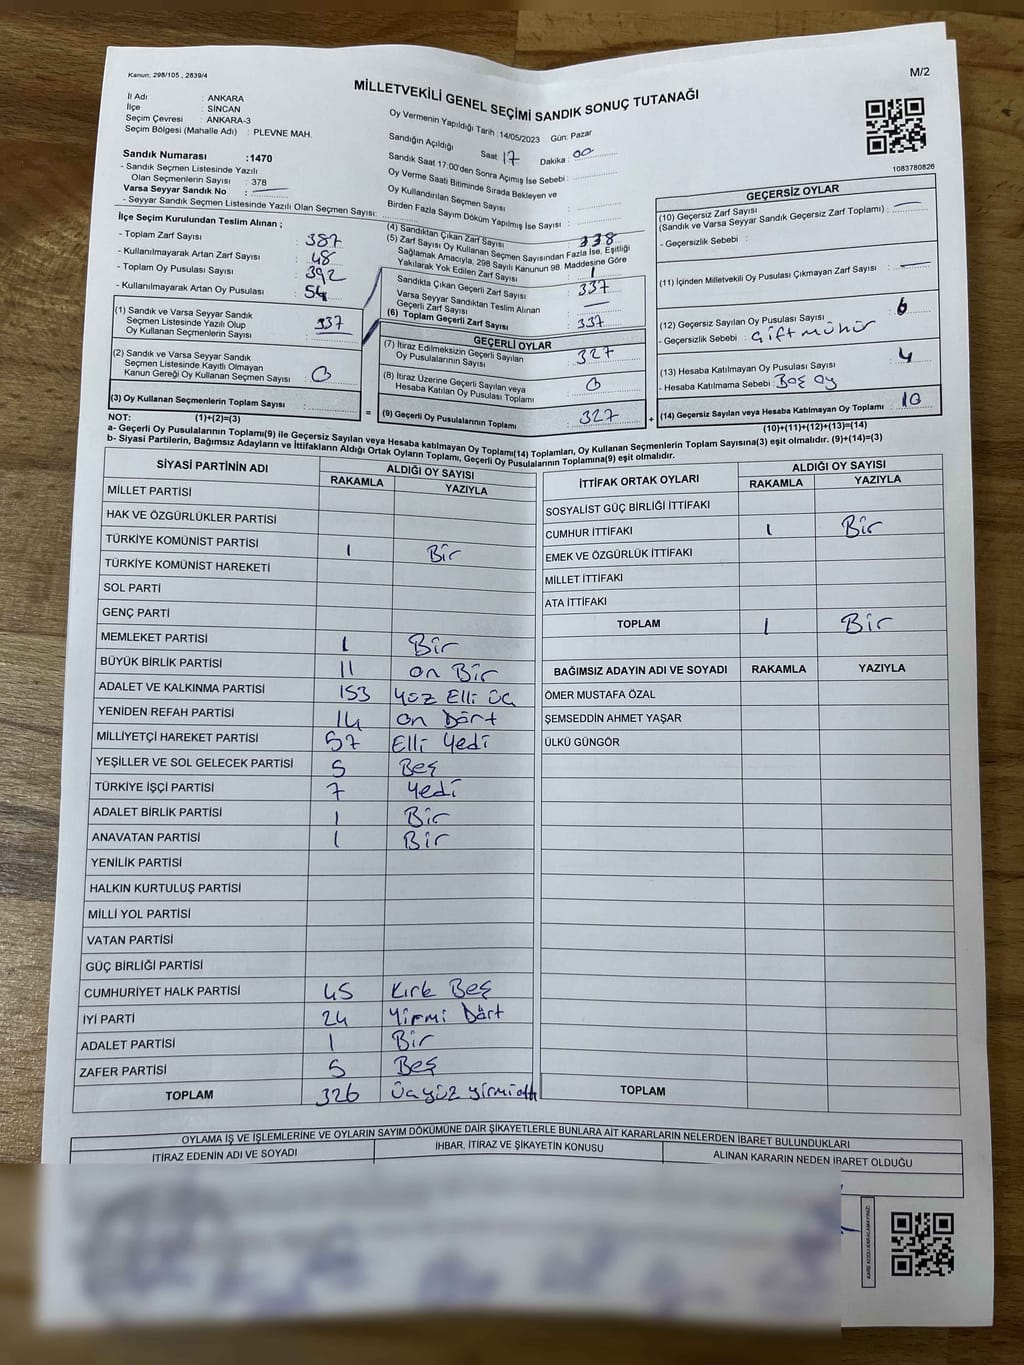 Kanun: 298/105 , 2839/4
M/2
MİLLETVEKİLİ GENEL SEÇİMİ SANDIK SONUÇ TUTANAĞI
İl Adı : ANKARA
İlçe : SİNCAN
Seçim Çevresi : ANKARA-3
Seçim Bölgesi (Mahalle Adı) : PLEVNE MAH.
Sandık Numarası :1470
- Sandık Seçmen Listesinde Yazılı
Olan Seçmenlerin Sayısı : 378
Varsa Seyyar Sandık No : —
- Seyyar Sandık Seçmen Listesinde Yazılı Olan Seçmen Sayısı:
Oy Vermenin Yapıldığı Tarih :14/05/2023 Gün: Pazar
Sandığın Açıldığı Saat: 17 Dakika : 00
Sandık Saat 17:00'den Sonra Açımış İse Sebebi :
Oy Verme Saati Bitiminde Sırada Bekleyen ve
Oy Kullandırılan Seçmen Sayısı :
Birden Fazla Sayım Döküm Yapılmış İse Sayısı :
1083780826
İlçe Seçim Kurulundan Teslim Alınan ;
- Toplam Zarf Sayısı : 387
- Kullanılmayarak Artan Zarf Sayısı : 48
- Toplam Oy Pusulası Sayısı : 392
- Kullanılmayarak Artan Oy Pusulası : 54
(1) Sandık ve Varsa Seyyar Sandık
Seçmen Listesinde Yazılı Olup
Oy Kullanan Seçmenlerin Sayısı : 337
(2) Sandık ve Varsa Seyyar Sandık
Seçmen Listesinde Kayıtlı Olmayan
Kanun Gereği Oy Kullanan Seçmen Sayısı : 0
(3) Oy Kullanan Seçmenlerin Toplam Sayısı :
(4) Sandıktan Çıkan Zarf Sayısı : 338
(5) Zarf Sayısı Oy Kullanan Seçmen Sayısından Fazla İse, Eşitliği
Sağlamak Amacıyla, 298 Sayılı Kanunun 98. Maddesine Göre
Yakılarak Yok Edilen Zarf Sayısı : 1
Sandıkta Çıkan Geçerli Zarf Sayısı : 337
Varsa Seyyar Sandıktan Teslim Alınan
Geçerli Zarf Sayısı : —
(6) Toplam Geçerli Zarf Sayısı : 337
GEÇERLİ OYLAR
(7) İtiraz Edilmeksizin Geçerli Sayılan
Oy Pusulalarının Sayısı : 327
(8) İtiraz Üzerine Geçerli Sayılan veya
Hesaba Katılan Oy Pusulası Toplamı : 0
= (9) Geçerli Oy Pusulalarının Toplamı : 327
GEÇERSİZ OYLAR
(10) Geçersiz Zarf Sayısı
(Sandık ve Varsa Seyyar Sandık Geçersiz Zarf Toplamı) : —
- Geçersizlik Sebebi :
(11) İçinden Milletvekili Oy Pusulası Çıkmayan Zarf Sayısı : —
(12) Geçersiz Sayılan Oy Pusulası Sayısı : 6
- Geçersizlik Sebebi : Çift mühür
(13) Hesaba Katılmayan Oy Pusulası Sayısı : 4
- Hesaba Katılmama Sebebi : Boş oy
+ (14) Geçersiz Sayılan veya Hesaba Katılmayan Oy Toplamı : 10
NOT: (1)+(2)=(3)
(10)+(11)+(12)+(13)=(14)
a- Geçerli Oy Pusulalarının Toplamı(9) ile Geçersiz Sayılan veya Hesaba katılmayan Oy Toplamı(14) Toplamları, Oy Kullanan Seçmenlerin Toplam Sayısına(3) eşit olmalıdır. (9)+(14)=(3)
b- Siyasi Partilerin, Bağımsız Adayların ve İttifakların Aldığı Ortak Oyların Toplamı, Geçerli Oy Pusulalarının Toplamına(9) eşit olmalıdır.
SİYASİ PARTİNİN ADI ALDIĞI OY SAYISI
RAKAMLA YAZIYLA
MİLLET PARTİSİ
HAK VE ÖZGÜRLÜKLER PARTİSİ
TÜRKİYE KOMÜNİST PARTİSİ 1 Bir
TÜRKİYE KOMÜNİST HAREKETİ
SOL PARTİ
GENÇ PARTİ
MEMLEKET PARTİSİ 1 Bir
BÜYÜK BİRLİK PARTİSİ 11 on Bir
ADALET VE KALKINMA PARTİSİ 153 Yüz Elli üç
YENİDEN REFAH PARTİSİ 14 on Dört
MİLLİYETÇİ HAREKET PARTİSİ 57 Elli Yedi
YEŞİLLER VE SOL GELECEK PARTİSİ 5 Beş
TÜRKİYE İŞÇİ PARTİSİ 7 Yedi
ADALET BİRLİK PARTİSİ 1 Bir
ANAVATAN PARTİSİ 1 Bir
YENİLİK PARTİSİ
HALKIN KURTULUŞ PARTİSİ
MİLLİ YOL PARTİSİ
VATAN PARTİSİ
GÜÇ BİRLİĞİ PARTİSİ
CUMHURİYET HALK PARTİSİ 45 Kırk Beş
İYİ PARTİ 24 Yirmi Dört
ADALET PARTİSİ 1 Bir
ZAFER PARTİSİ 5 Beş
TOPLAM 326 Üçyüz yirmialtı
İTTİFAK ORTAK OYLARI ALDIĞI OY SAYISI
RAKAMLA YAZIYLA
SOSYALİST GÜÇ BİRLİĞİ İTTİFAKI
CUMHUR İTTİFAKI 1 Bir
EMEK VE ÖZGÜRLÜK İTTİFAKI
MİLLET İTTİFAKI
ATA İTTİFAKI
TOPLAM 1 Bir
BAĞIMSIZ ADAYIN ADI VE SOYADI RAKAMLA YAZIYLA
ÖMER MUSTAFA ÖZAL
ŞEMSEDDİN AHMET YAŞAR
ÜLKÜ GÜNGÖR
TOPLAM
OYLAMA İŞ VE İŞLEMLERİNE VE OYLARIN SAYIM DÖKÜMÜNE DAİR ŞİKAYETLERLE BUNLARA AİT KARARLARIN NELERDEN İBARET BULUNDUKLARI
İTİRAZ EDENİN ADI VE SOYADI İHBAR, İTİRAZ VE ŞİKAYETİN KONUSU ALINAN KARARIN NEDEN İBARET OLDUĞU
KARE KODU KARALAMAYINIZ!